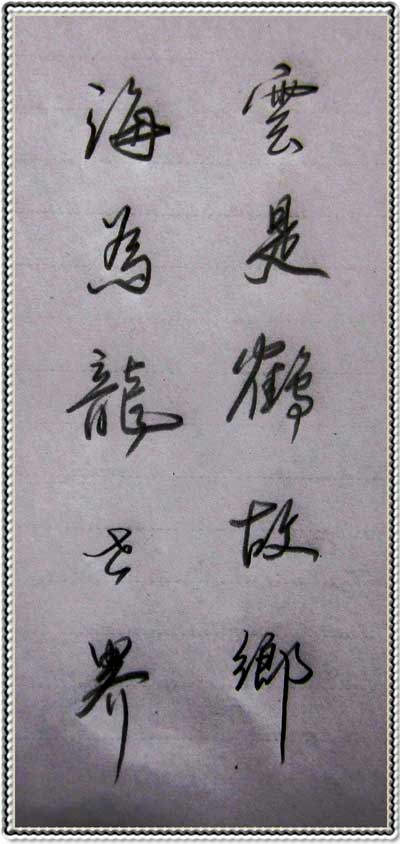 雲是鶴故鄉
海為龍世界